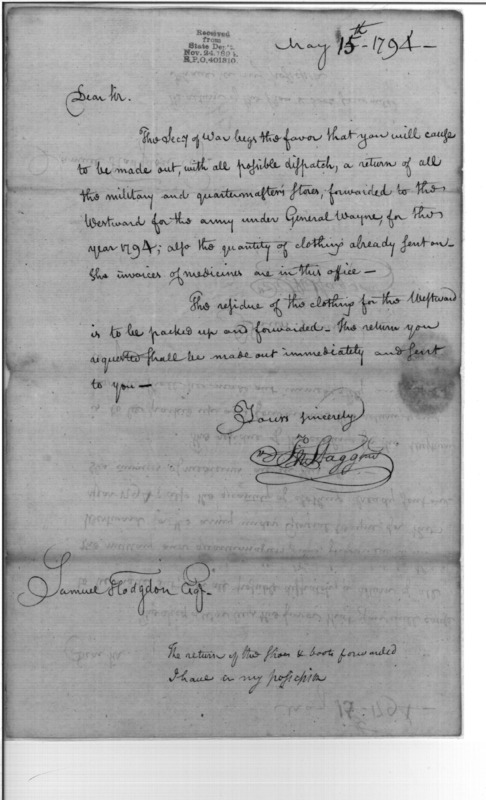 Received
from
State Dept.
Nov. 24, 1894
R.P.O. 401810
May 15th 1794 —
Dear Sir.
The Secy of War begs the favor that you will cause
to be made out, with all possible dispatch, a return of all
the military and quartermaster's stores, forwarded to the
Westward for the army under General Wayne, for the
year 1794; also the quantity of clothing already sent on —
The invoices of medicines are in this office —
The residue of the clothing for the Westward
is to be packed up and forwarded — The return you
requested shall be made out immediately and sent
to you —
Yours sincerely
Jno Stagg Jr
Samuel Hodgdon Esqr
The return of the Shoes & boots forwarded
I have in my possession